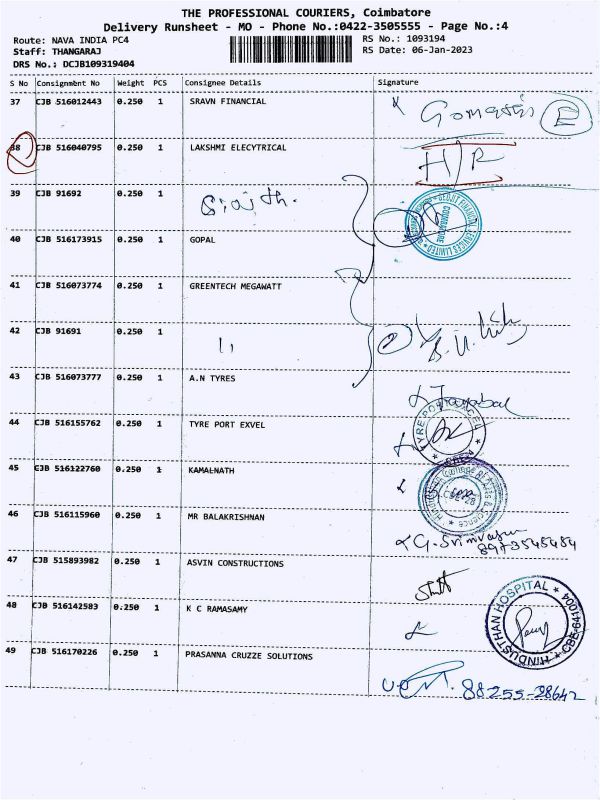 THE PROFESSIONAL COURIERS, Coimbatore
Delivery Runsheet - MO - Phone No.:0422-3505555 - Page No.:4
Route: NAVA INDIA PC4 RS No.: 1093194
Staff: THANGARAJ RS Date: 06-Jan-2023
DRS No.: DCJB109319404
S No Consignment No Weight PCS Consignee Details Signature
37 CJB 516012443 0.250 1 SRAVN FINANCIAL
38 CJB 516040795 0.250 1 LAKSHMI ELECYTRICAL
39 CJB 91692 0.250 1
40 CJB 516173915 0.250 1 GOPAL
41 CJB 516073774 0.250 1 GREENTECH MEGAWATT
42 CJB 91691 0.250 1
43 CJB 516073777 0.250 1 A.N TYRES
44 CJB 516155762 0.250 1 TYRE PORT EXVEL
45 CJB 516122760 0.250 1 KAMALNATH
46 CJB 516115960 0.250 1 MR BALAKRISHNAN
G. Srinivasan
8973545484
47 CJB 515893982 0.250 1 ASVIN CONSTRUCTIONS
48 CJB 516142583 0.250 1 K C RAMASAMY
HINDUSTHAN HOSPITAL
CBE-641004
49 CJB 516170226 0.250 1 PRASANNA CRUZZE SOLUTIONS
88255-28642